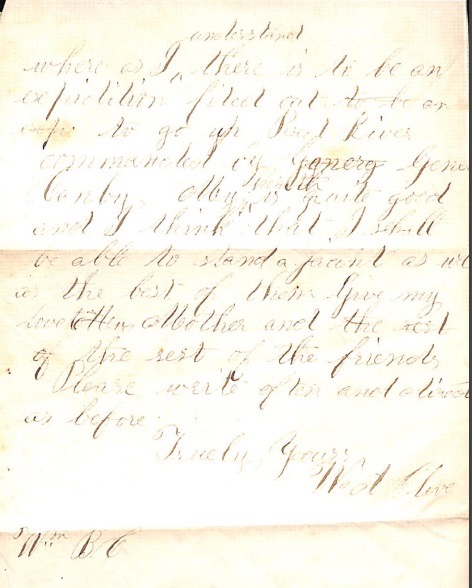 understand
where as I there is to be an
expotition fited out to be an
to go up Red River
commanded by Genera Gene
Canby. My health is quite good
and I think that I shall
be able to stand a jaint as wel
as the best of them Give my
love to Mother and the rest
of the rest of the friends
Please write often and direct
as before
Truely Yours
West Clive
Wm B. C